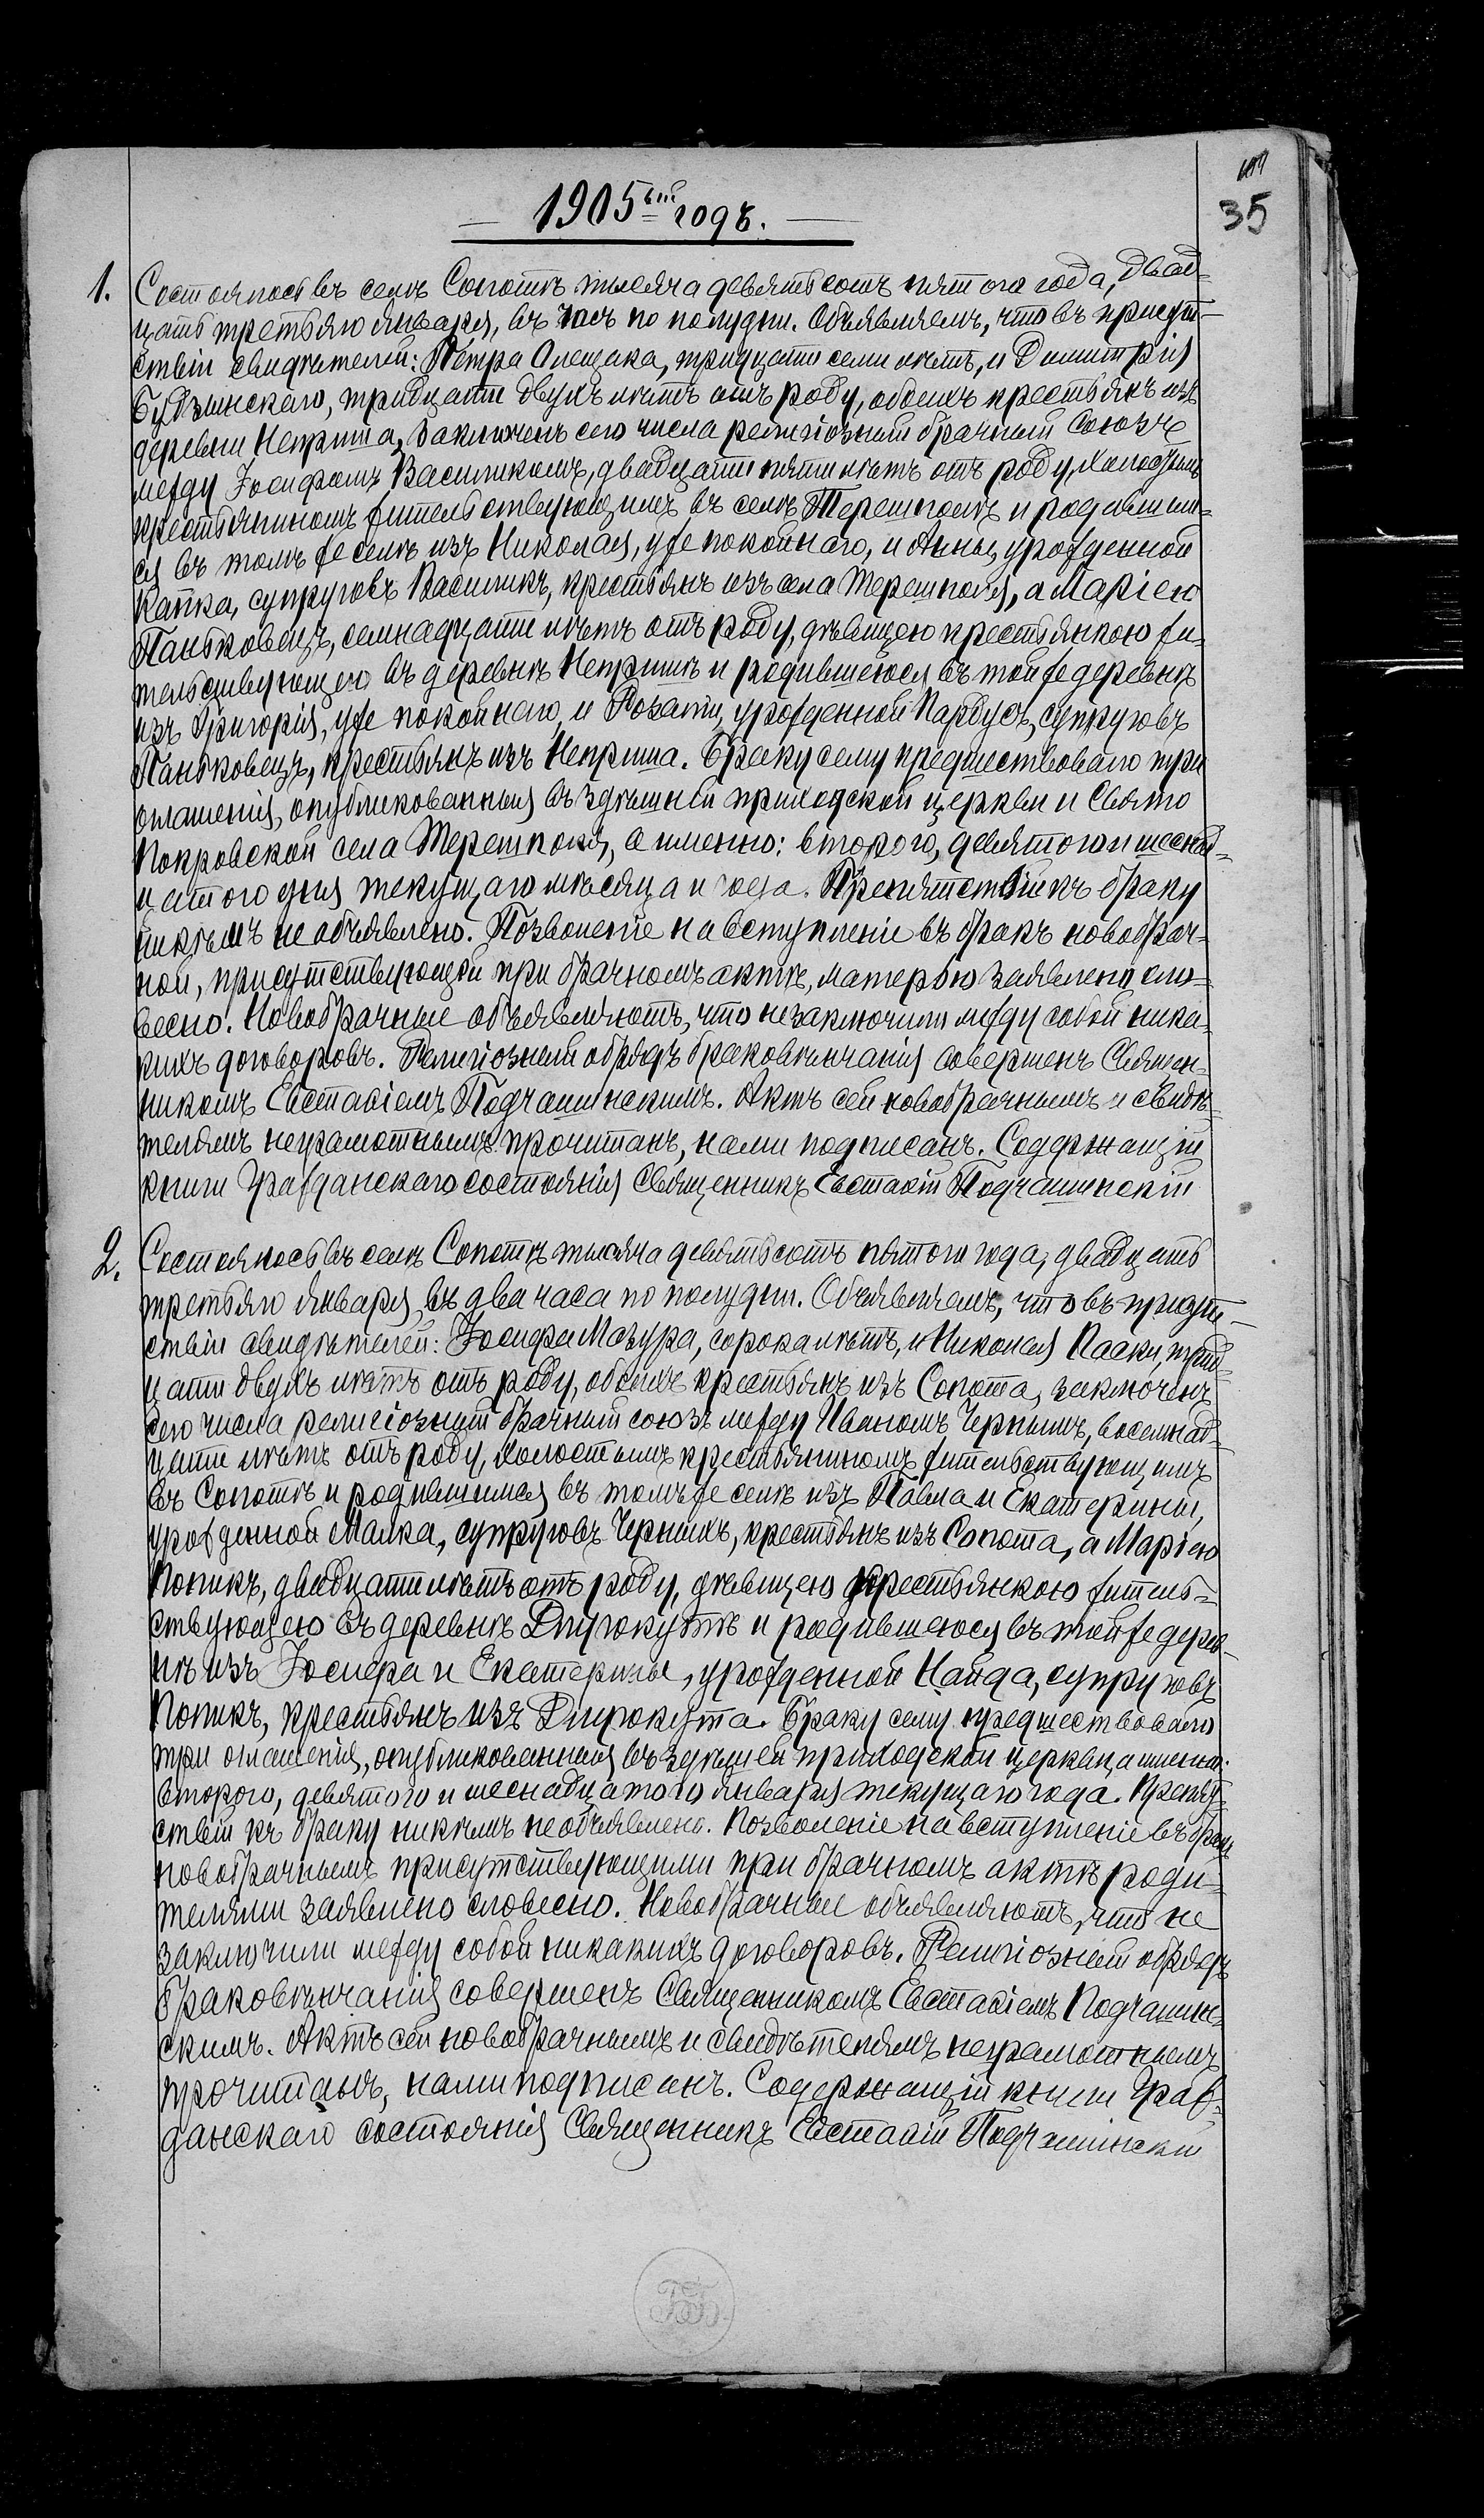 35
1905ый годъ.
1. Состоялось въ селѣ Сопотѣ тысяча девятьсотъ пятого года, двад-
цать третьяго января, въ часъ по полудни. Объявляемъ, что въ присут-
ствіи свидѣтелей: Петра Олещака, тридцати семи лѣтъ, и Димитрія
Будзинскаго, тридцати двухъ лѣтъ отъ роду, обоихъ крестьянъ изъ
деревни Неприша, заключенъ сего числа религіозный брачный союзъ
между Іосифомъ Василикомъ, двадцати пяти лѣтъ отъ роду, холостымъ
крестьяниномъ жительствующимъ въ селѣ Терешполѣ и родившим-
ся въ томъ же селѣ изъ Николая, уже покойнаго, и Анны, урожденной
Капка, супруговъ Василикъ, крестьянъ изъ села Терешполя, а Маріею
Паньковецъ, семнадцати лѣтъ отъ роду, дѣвицею крестьянкою жи-
тельствующею въ деревнѣ Непришѣ и родившеюся въ той же деревнѣ
изъ Григорія, уже покойнаго, и Розаліи, урожденной Парвусъ, супруговъ
Паньковецъ, крестьянъ изъ Неприша. Браку сему предшествовало три
оглашенія, опубликованныя въ здѣшней приходской церкви и Свято
Покровской села Терешполя, а именно: второго, девятого и шеснад-
цатого дня текущаго мѣсяца и года. Препятствій къ браку
никѣмъ не объявлено. Позволеніе на вступленіе въ бракъ новобрач-
ной, присутствующей при брачномъ актѣ, матерью заявлено сло-
весно. Новобрачные объявляютъ, что не заключили между собой ника-
кихъ договоровъ. Религіозный обрядъ браковѣнчанія совершенъ Священ-
никомъ Евстафіемъ Подгашинскимъ. Актъ сей новобрачнымъ и свидѣ-
телямъ неграмотнымъ прочитанъ, нами подписанъ. Содержащій
книги Гражданскаго состоянія Священникъ Евстафій Подгашинскій
2. Состоялось въ селѣ Сопотѣ тысяча девятьсотъ пятого года, двадцать
третьяго января, въ два часа по полудни. Объявляемъ, что въ присут-
ствіи свидѣтелей: Іосифа Мазура, сорока лѣтъ, и Николая Паски, трид-
цати двухъ лѣтъ отъ роду, обоихъ крестьянъ изъ Сопота, заключенъ
сего числа религіозный брачный союзъ между Иваномъ Чернымъ, восемнад-
цати лѣтъ отъ роду, холостымъ крестьяниномъ жительствующимъ
въ Сопотѣ и родившимся въ томъ же селѣ изъ Павла и Екатерины,
урожденной Малка, супруговъ Черныхъ, крестьянъ изъ Сопота, а Маріею
Попикъ, двадцати лѣтъ отъ роду, дѣвицею крестьянкою житель-
ствующею въ деревнѣ Длугокутѣ и родившеюся въ той же дерев-
нѣ изъ Іосифа и Екатерины, урожденной Найда, супруговъ
Попикъ, крестьянъ изъ Длугокута. Браку сему предшествовало
три оглашенія, опубликованныя въ здѣшней приходской церкви, а именно:
второго, девятого и шеснадцатого января текущаго года. Препят-
ствій къ браку никѣмъ не объявлено. Позволеніе на вступленіе въ бракъ
новобрачнымъ присутствующими при брачномъ актѣ роди-
телями заявлено словесно. Новобрачные объявляютъ, что не
заключили между собой никакихъ договоровъ. Религіозный обрядъ
браковѣнчанія совершенъ Священникомъ Евстафіемъ Подгашин-
скимъ. Актъ сей новобрачнымъ и свидѣтелямъ неграмотнымъ
прочитанъ, нами подписанъ. Содержащій книги Граж-
данскаго состоянія Священникъ Евстафій Подгашинскій